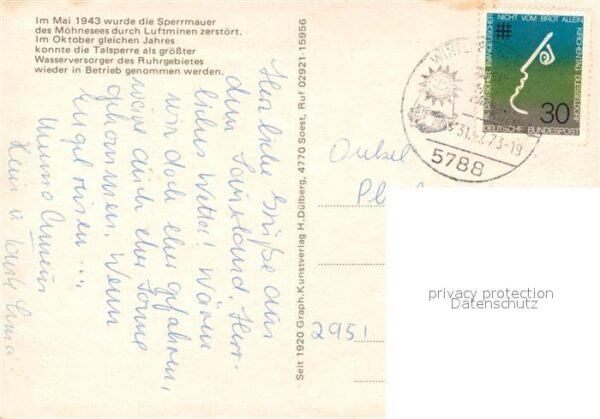 Im Mai 1943 wurde die Sperrmauer
des Möhnesees durch Luftminen zerstört.
Im Oktober gleichen Jahres
konnte die Talsperre als größter
Wasserversorger des Ruhrgebietes
wieder in Betrieb genommen werden.
Herzliche Grüße aus
dem Sauerland. Herr-
liches Wetter! Wären
wir doch eher gefahren,
wäre auch eher Sonne
gekommen. Wenn
Engel reisen ...
Seit 1920 Graph. Kunstverlag H. Dülberg, 4770 Soest, Ruf 02921-15956
NICHT VOM BROT ALLEIN
KIRCHENTAG DÜSSELDORF
DEUTSCHER EVANGELISCHER
30
DEUTSCHE BUNDESPOST
73-19
5788
Onkel
2951
privacy protection
Datenschutz